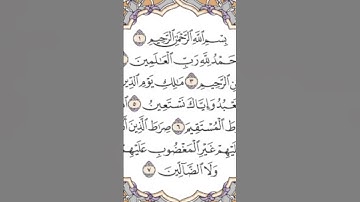 بِسْمِ اللَّهِ الرَّحْمَٰنِ الرَّحِيمِ ١
حَمْدُ لِلَّهِ رَبِّ الْعَالَمِينَ
نِ الرَّحِيمِ ٣ مَالِكِ يَوْمِ الدِّينِ
عْبُدُ وَإِيَّاكَ نَسْتَعِينُ ٥
طَ الْمُسْتَقِيمَ ٦ صِرَاطَ الَّذِينَ أَن
لَيْهِمْ غَيْرِ الْمَغْضُوبِ عَلَيْهِمْ
وَلَا الضَّالِّينَ ٧